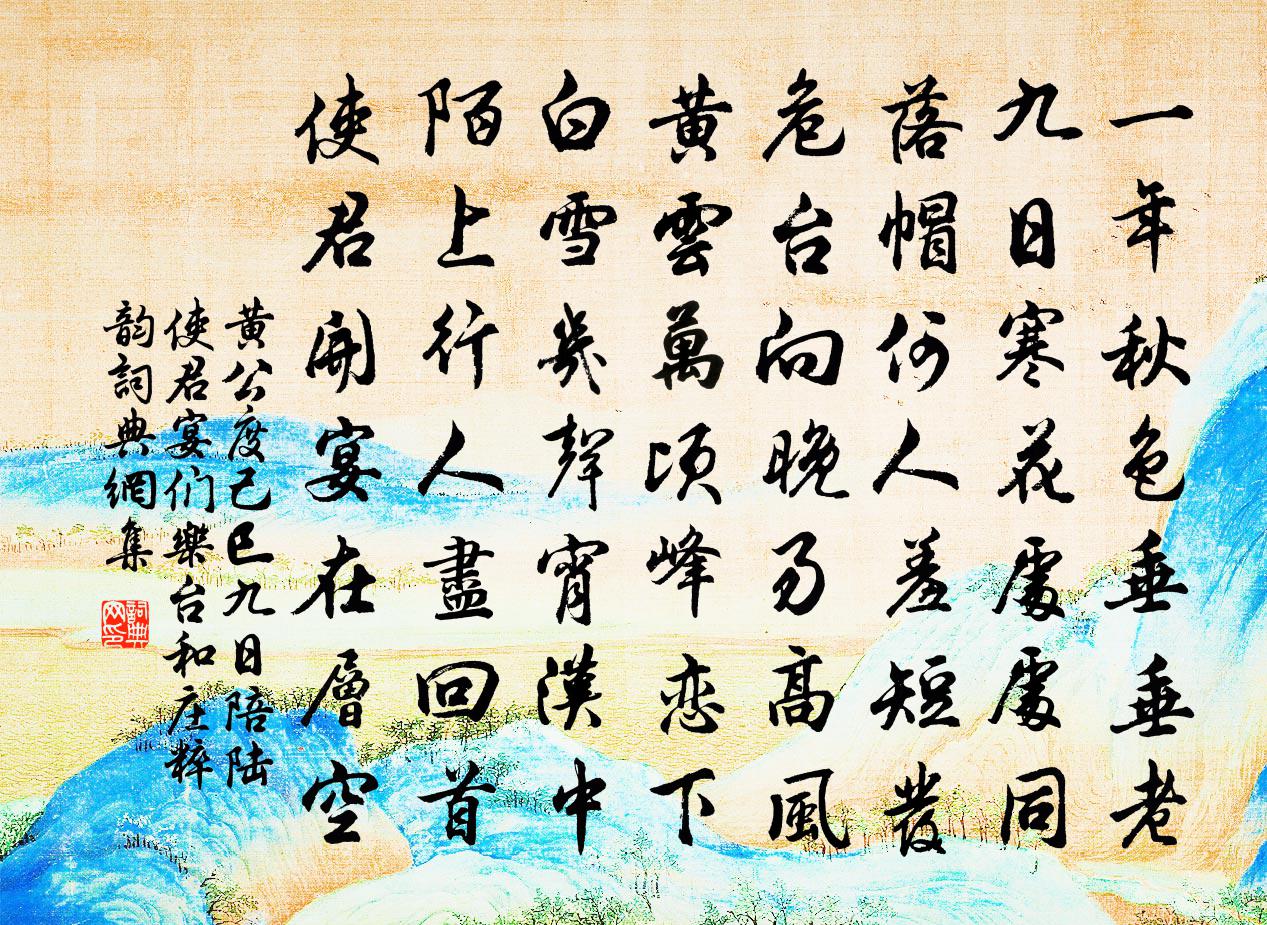 一年秋色垂垂老
九日寒花處處同
落帽何人羞短髮
危台向晚易高風
黃雲萬頃峰恋下
白雪幾聲宵漢中
陌上行人盡回首
使君開宴在層空
黃公度己巳九日陪陆
使君宴们樂台和庄粹
韵詞典網集
詞典
网印